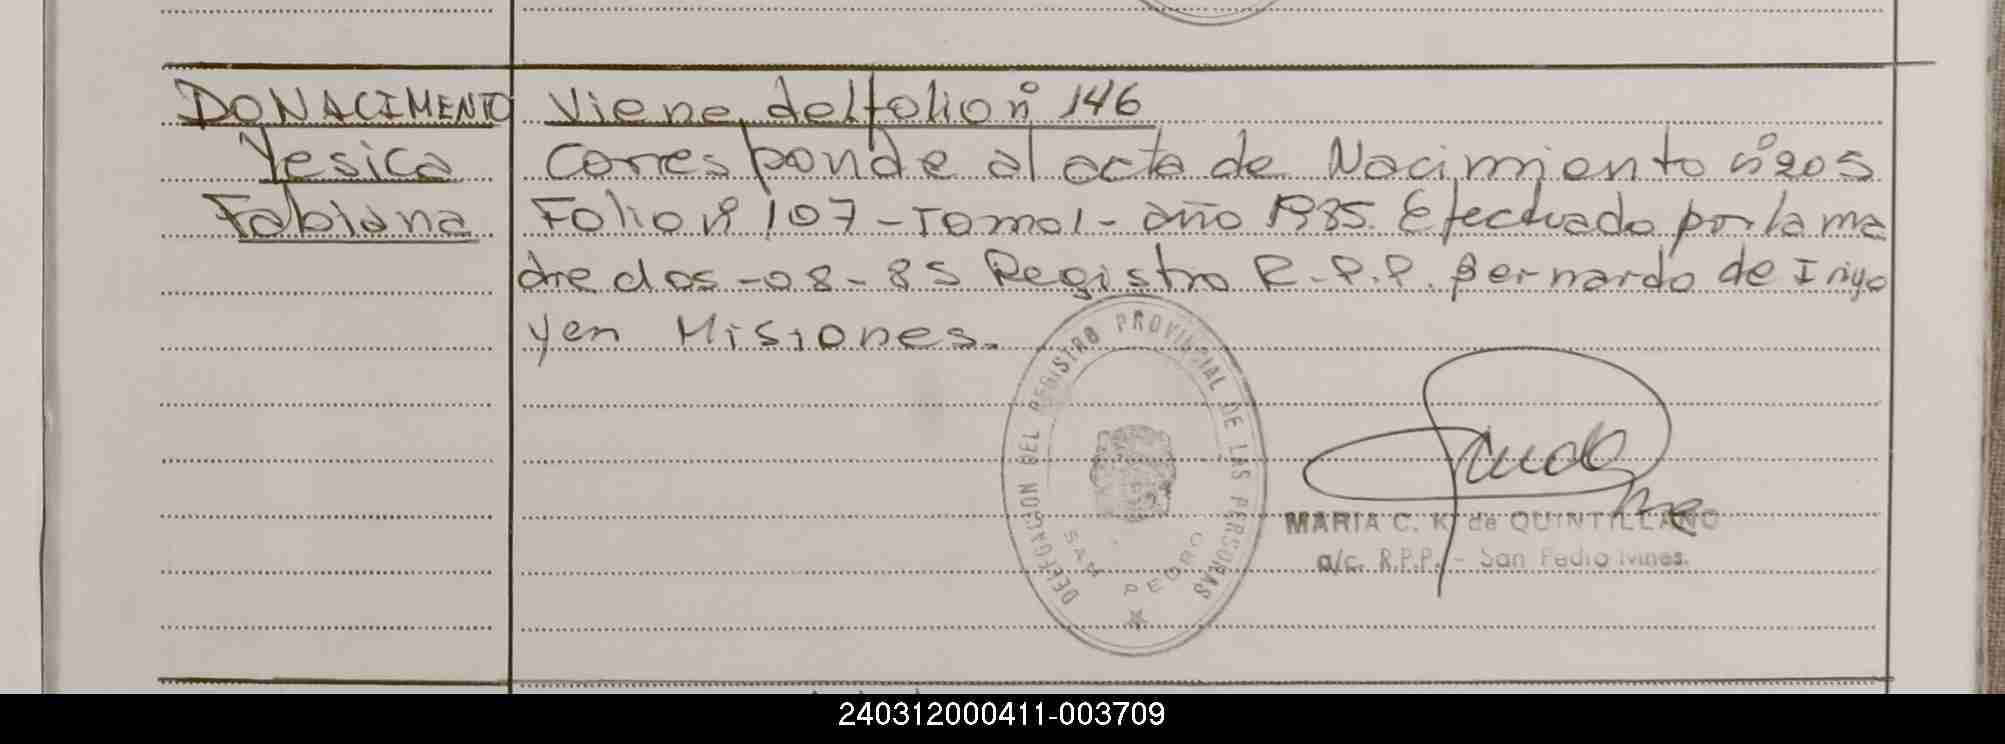 DO NACIMENTO
Yesica
Fabiana
Viene del folio nº 146
Corresponde al acta de Nacimiento nº 205
Folio nº 107 - Tomo 1 - año 1985. Efectuado por la ma
dre el 05 - 08 - 85 Registro R.P.P. Bernardo de Irigo
yen Misiones.
DELEGACION DEL REGISTRO PROVINCIAL DE LAS PERSONAS
SAN PEDRO
MARIA C. K. de QUINTILLANO
a/c. R.P.P. - San Pedro Mnes.
240312000411-003709